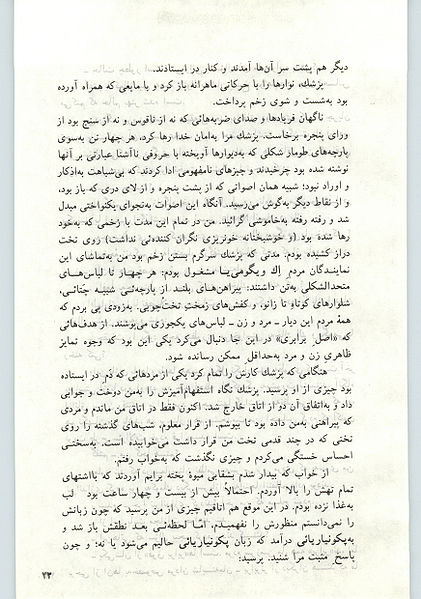 دیگر هم پشت سر آن‌ها آمدند و کنار در ایستادند.
پزشك، نوارها را با حرکاتی ماهرانه باز کرد و با مایعی که همراه آورده
بود به‌شست و شوی زخم پرداخت.
ناگهان فریادها و صدای ضربه‌هائی که نه از ناقوس و نه از سنج بود از
ورای پنجره برخاست. پزشك مرا به‌امان خدا رها کرد، هر چهار تن به‌سوی
پارچه‌های طومار شکلی که به‌دیوارها آویخته با حروفی ناآشنا عبارتی بر آنها
نوشته شده بود چرخیدند و چیزهای نامفهومی ادا کردند که بی‌شباهت به‌اذکار
و اوراد نبود؛ شبیه همان اصواتی که از پشت پنجره و از لای دری که باز بود،
و از نقاط دیگر به‌گوش می‌رسید. آنگاه این اصوات به‌نجوای یکنواختی مبدل
شد و رفته رفته به‌خاموشی گرائید. من در تمام این مدت با زخمی که به‌خود
رها شده بود (و خوشبختانه خونریزی نگران کننده‌ئی نداشت) روی تخت
دراز کشیده بودم. مدتی که پزشك سرگرم بستن زخم بود من به‌تماشای این
نمایندگان مردم اِك ویگومی‌یا مشغول بودم: هر چهار تا لباس‌های
متحدالشکلی به‌تن داشتند: پیراهن‌های بلند از پارچه‌ئی شبیه چتائی،
شلوارهای کوتاه تا زانو، و کفش‌های زمختِ تخت‌چوبی. به‌زودی پی بردم که
همهٔ مردم این دیار ـ مرد و زن ـ لباس‌های یکجوزی می‌پوشند. از هدف‌هائی
که «اصل برابری» در این جا دنبال می‌کرد یکی این بود که وجوه تمایز
ظاهریِ زن و مرد به‌حداقل ممکن رسانده شود.
هنگامی که پزشك کارش را تمام کرد یکی از مردهائی که دَمِ در ایستاده
بود چیزی از او پرسید. پزشك نگاه استفهام‌آمیزش را به‌من دوخت و جوابی
داد و به‌اتفاق آن دو از اتاق خارج شد. اکنون فقط در اتاق من ماندم و مردی
که پیراهنی به‌من داده بود تا بپوشم. از قرار معلوم، شب‌های گذشته را روی
تختی که در چند قدمی تخت من قرار داشت می‌خوابیده است. به‌سختی
احساس خستگی می‌کردم و چیزی نگذشت که به‌خواب رفتم.
از خواب که بیدار شدم بشقابی میوهٔ پخته برایم آوردند که بااشتهای
تمام تهش را بالا آوردم. احتمالاً بیش از بیست و چهار ساعت بود لب
به‌غذا نزده بودم. در این موقع هم اتاقیم چیزی از من پرسید که چون زبانش
را نمی‌دانستم منظورش را نفهمیدم. امّا لحظه‌ئی بعد نطقش باز شد و
به‌پکونیاریائی درآمد که زبان پکونیاریائی حالیم می‌شود یا نه؛ و چون
پاسخ مثبت مرا شنید. پرسید:
۲۳